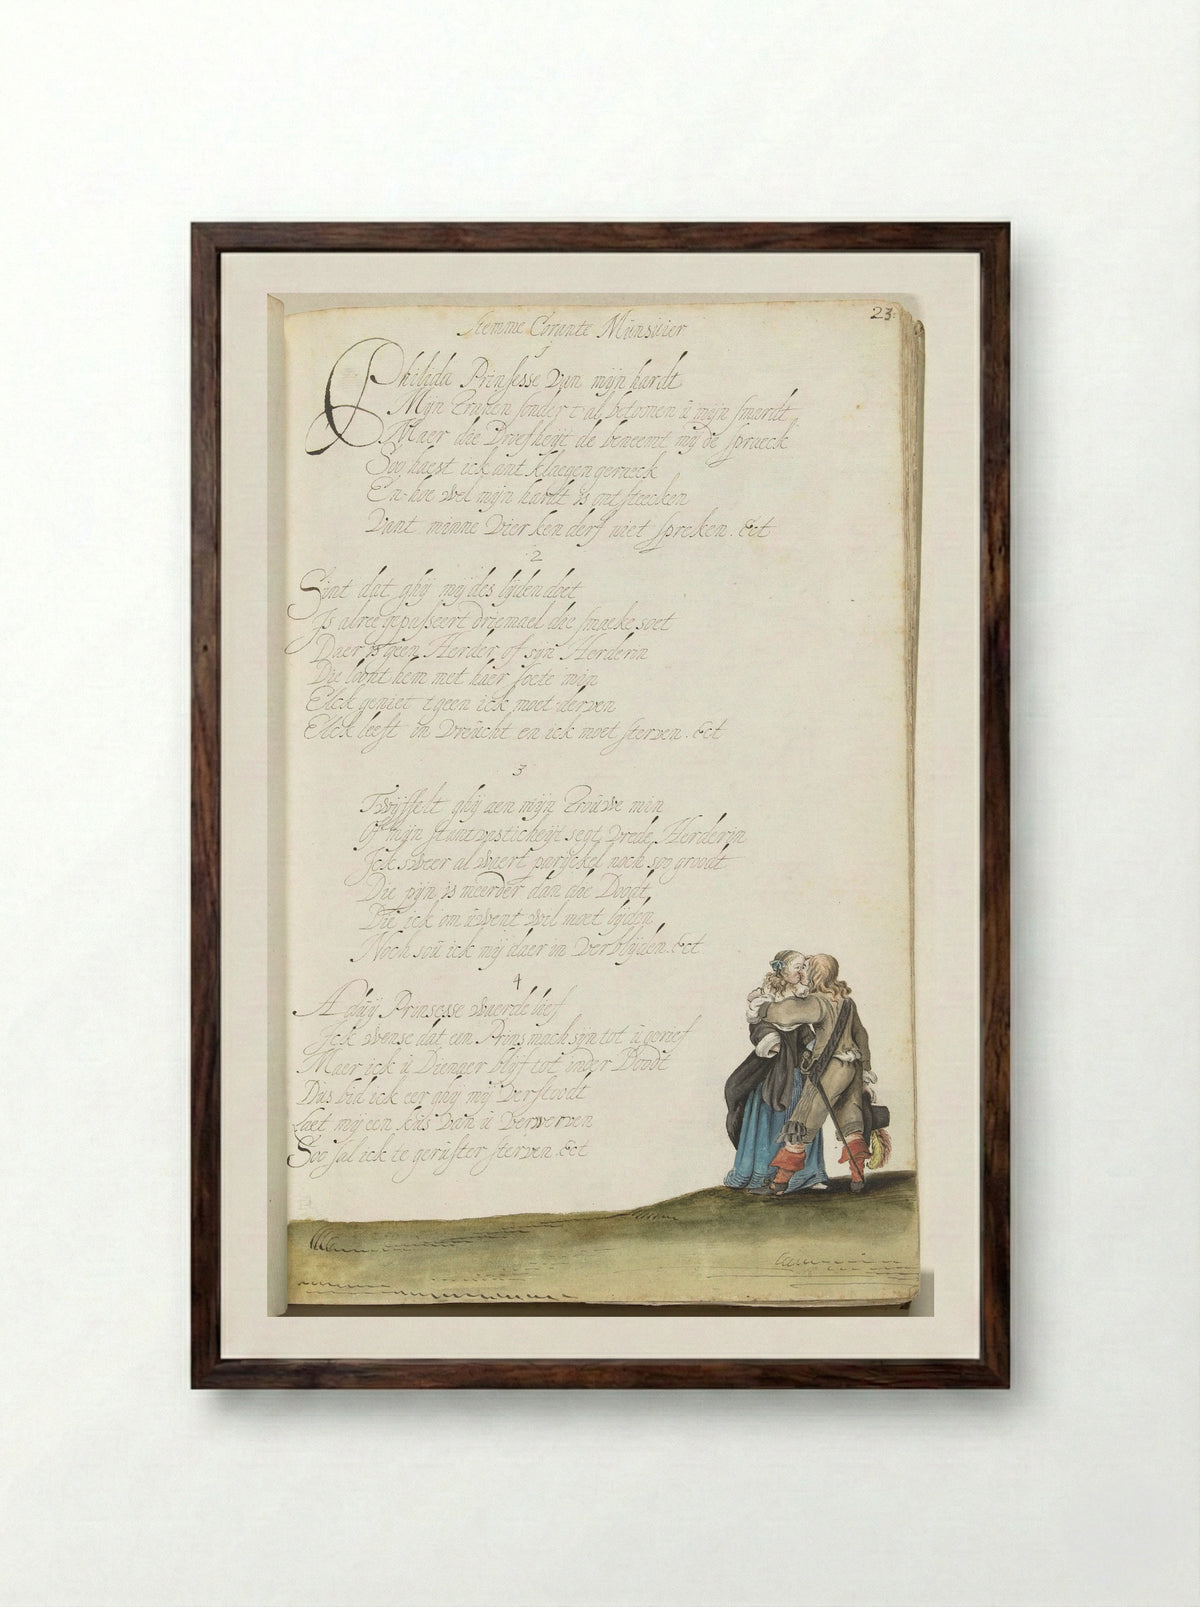 23
Stemme Corante Munsuier
Philida Prinsesse Van mijn hardt
Mijn Tranen sonder tal betoonen ú mijn smardt
Maer die Droefheijt de beneemt mij de spraeck
Soo haest ick ant klaegen geraeck
En hoe wel mijn hardt is ontsteecken
Want minne Vier ken derf niet spreken. &ct
2
Sint dat ghij mij des lijden doet
Is alree gepasseert driemael die smaeke soet
Daer is geen Herder of sijn Herderin
Die loont hem met haer soete min
Elck geniet tgeen ick moet derven
Elck leeft in Vreúcht en ick moet sterven. &ct
3
Twijffelt ghij aen mijn Troúwe min
Of mijn stantvasticheijt segt Vrede Herderijn
Ick sweer al waert perijckel noch soo groodt
Die pijn is meerder dan de Doodt
Die ick om úwent wil moet lijden
Noch soú ick mij daer in Verblijden. &ct
4
Adúij Prinsesse waerde lief
Ick wense dat een Prins mach sijn tot ú gerief
Maer ick ú Dienaer blijf tot inder Doodt
Das bid ick eer ghij mij Verstoodt
Laet mij een kús Van ú Verwerven
Soo sal ick te gerúster sterven. &ct